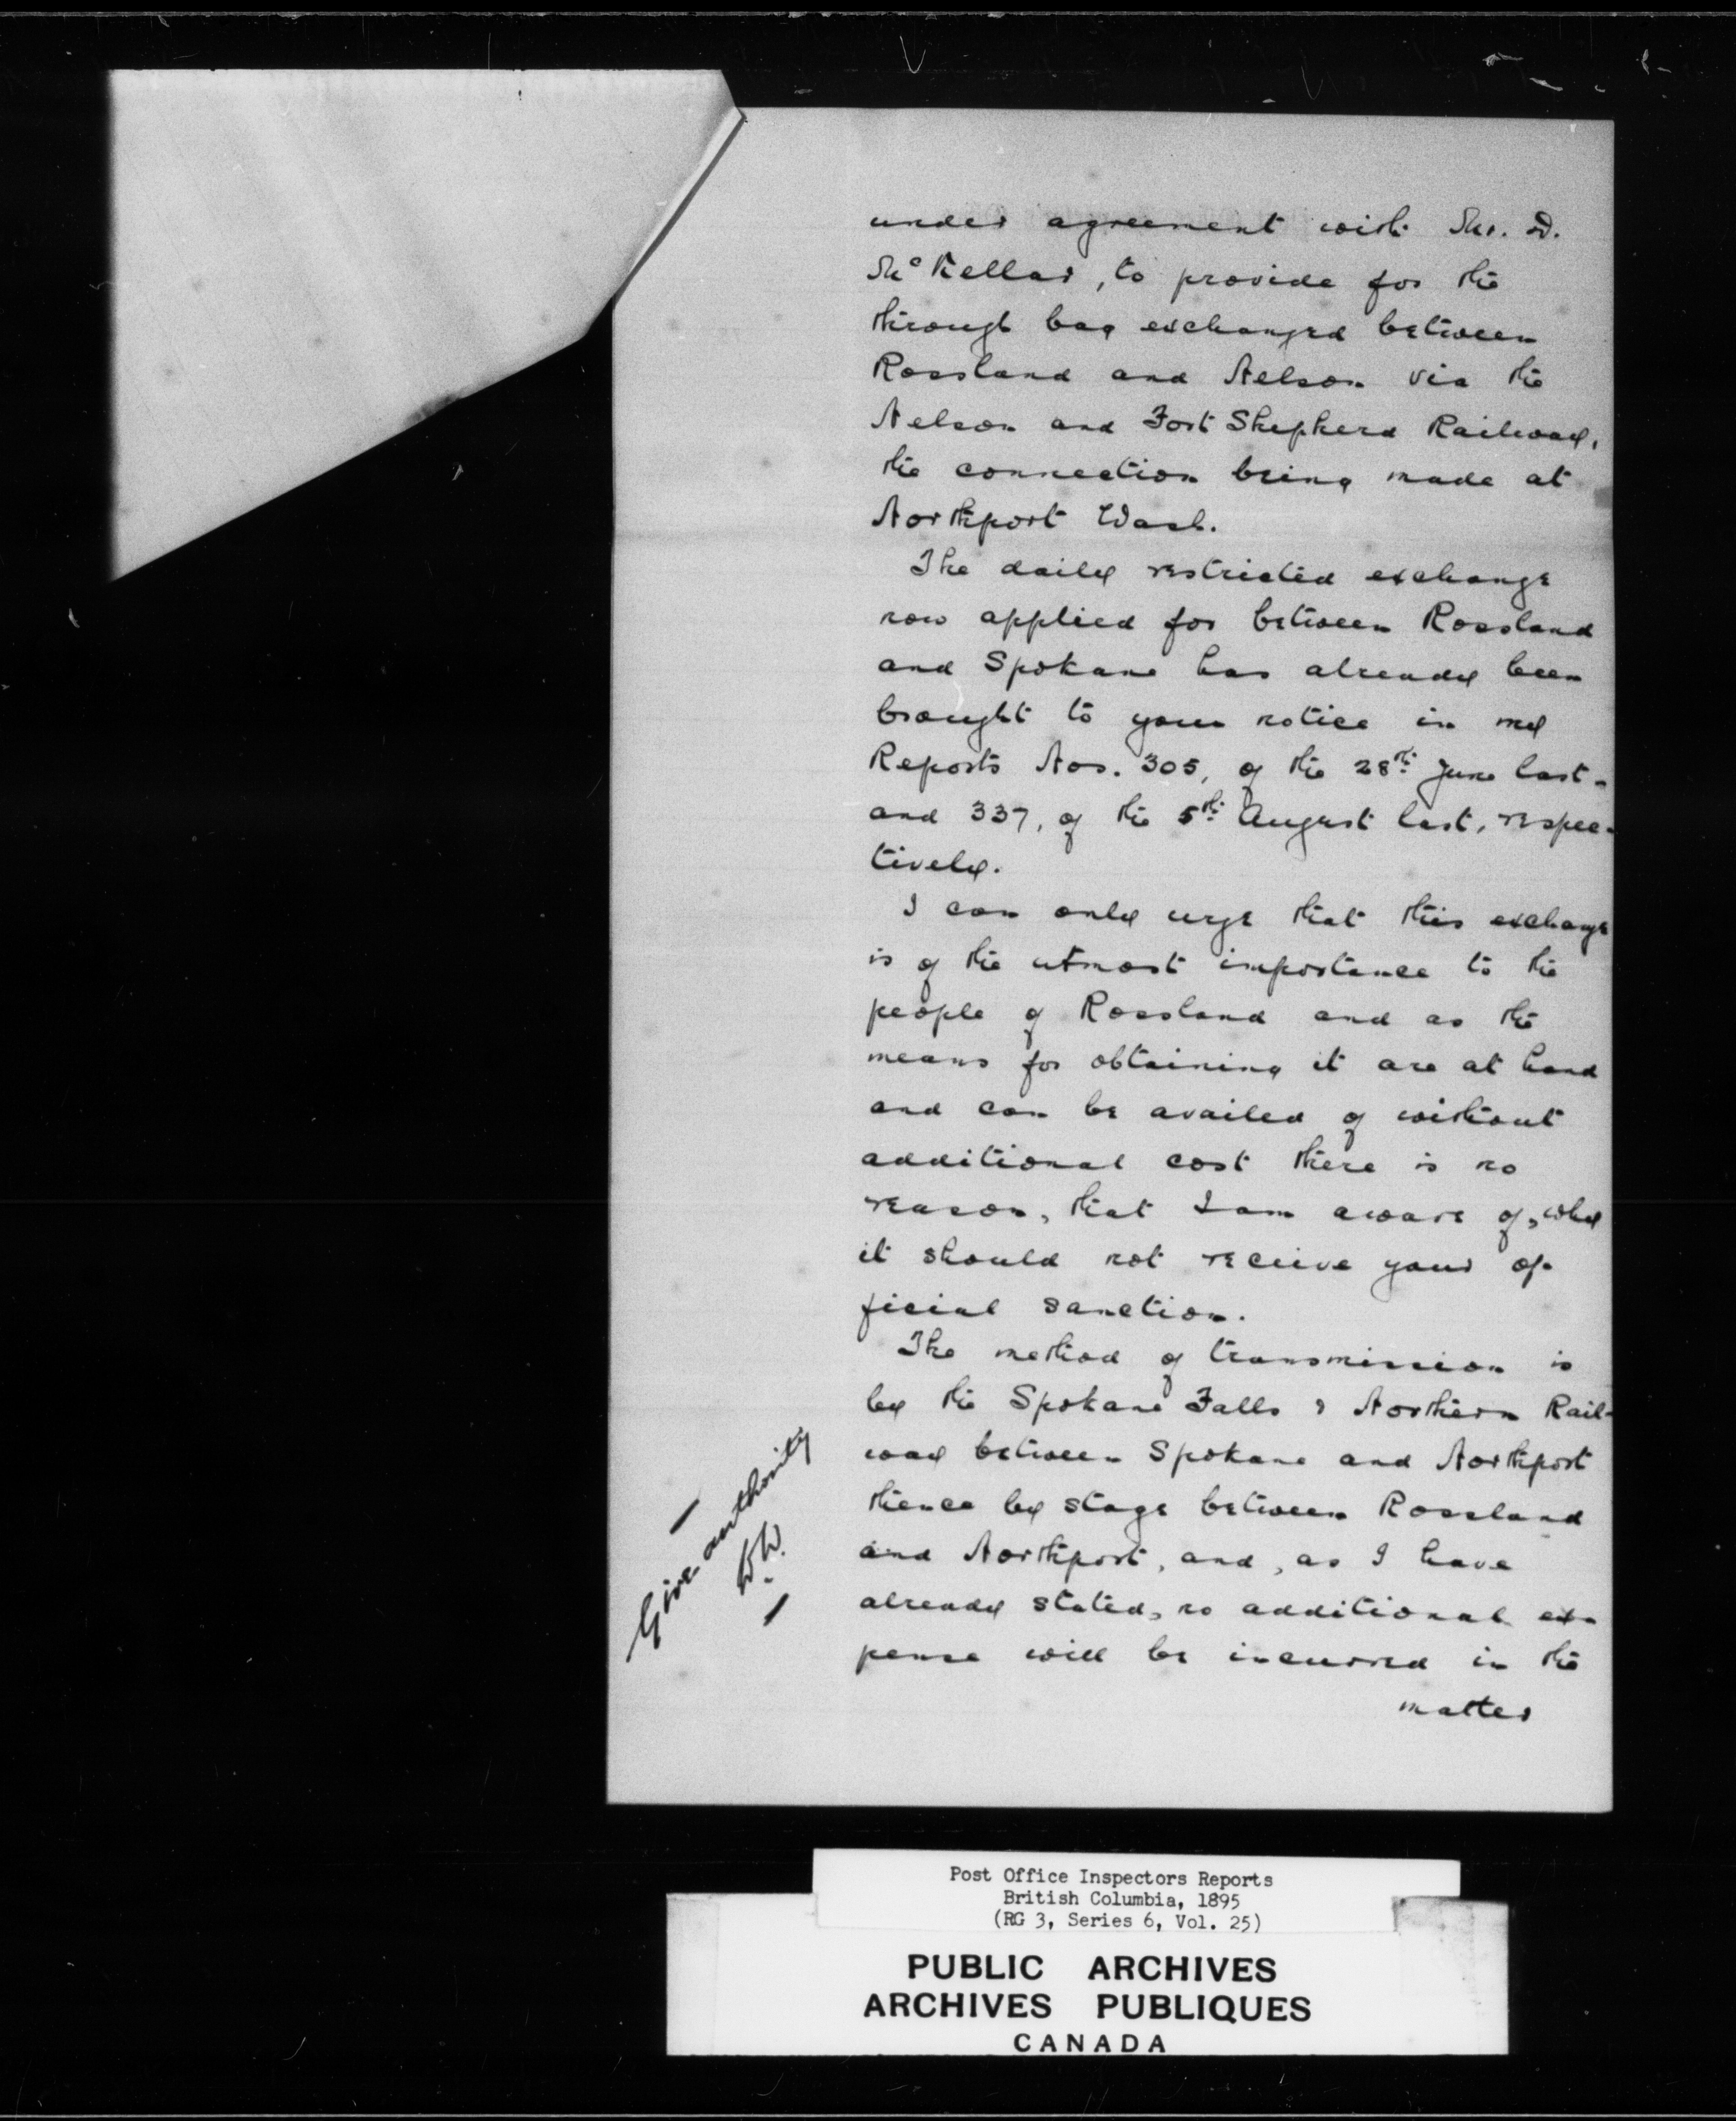 under agreement with Mr. D.
McKellar, to provide for the
through bag exchanged between
Rossland and Nelson via the
Nelson and Fort Shepherd Railway,
the connection being made at
Northport Wash.
The daily restricted exchange
now applied for between Rossland
and Spokane has already been
brought to your notice in my
Reports Nos. 305, of the 28th June last-
and 337, of the 5th August last, respec-
tively.
I can only urge that this exchange
is of the utmost importance to the
people of Rossland and as the
means for obtaining it are at hand
and can be availed of without
additional cost there is no
reason, that I am aware of, why
it should not receive your of-
ficial sanction.
The method of transmission is
by the Spokane Falls & Northern Rail-
way between Spokane and Northport
thence by stage between Rossland
and Northport, and, as I have
already stated, no additional ex-
pense will be incurred in the
matter
Give authority
Post Office Inspectors Reports
British Columbia, 1895
(RG 3, Series 6, Vol. 25)
PUBLIC ARCHIVES
ARCHIVES PUBLIQUES
CANADA